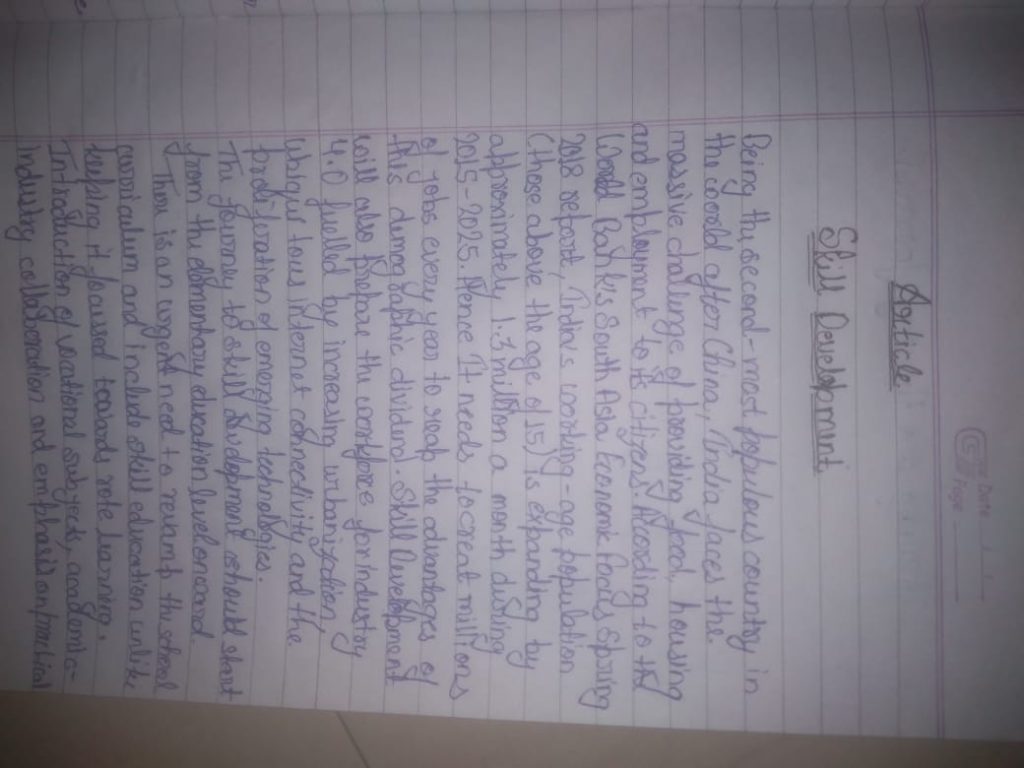 Date
Page
Article
Skill Development
Being the second-most populous country in
the world after China, India faces the
massive challenge of providing food, housing
and employment to its citizens. According to the
World Bank's South Asia Economic Focus spring
2018 report, India's working-age population
(those above the age of 15) is expanding by
approximately 1.3 million a month during
2015-2025. Hence It needs to creat millions
of jobs every year to reap the advantages of
this demographic dividend. Skill Development
will also prepare the workforce for industry
4.0 fuelled by increasing urbanization,
internet connectivity and the
proliferation of emerging technologies.
The journey to skill development should start
from the elementary education level onward.
There is an urgent need to the
curriculum and include skill education unlike
keeping it focussed towards rote learning.
Introduction of vocational subjects, academic-
industry collaboration and emphasis on practical